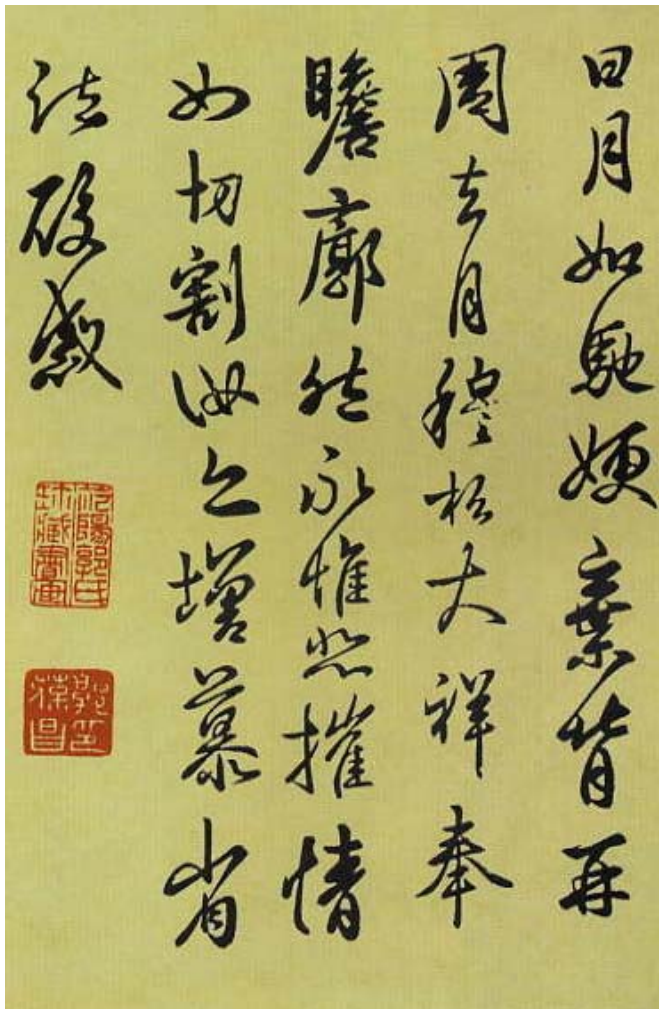 日月如馳嫂棄背再
周去月穆松大祥奉
瞻廓然永惟悲摧情
如切割汝亦增慕省
疏酸感
范陽郭氏
珍藏書畫